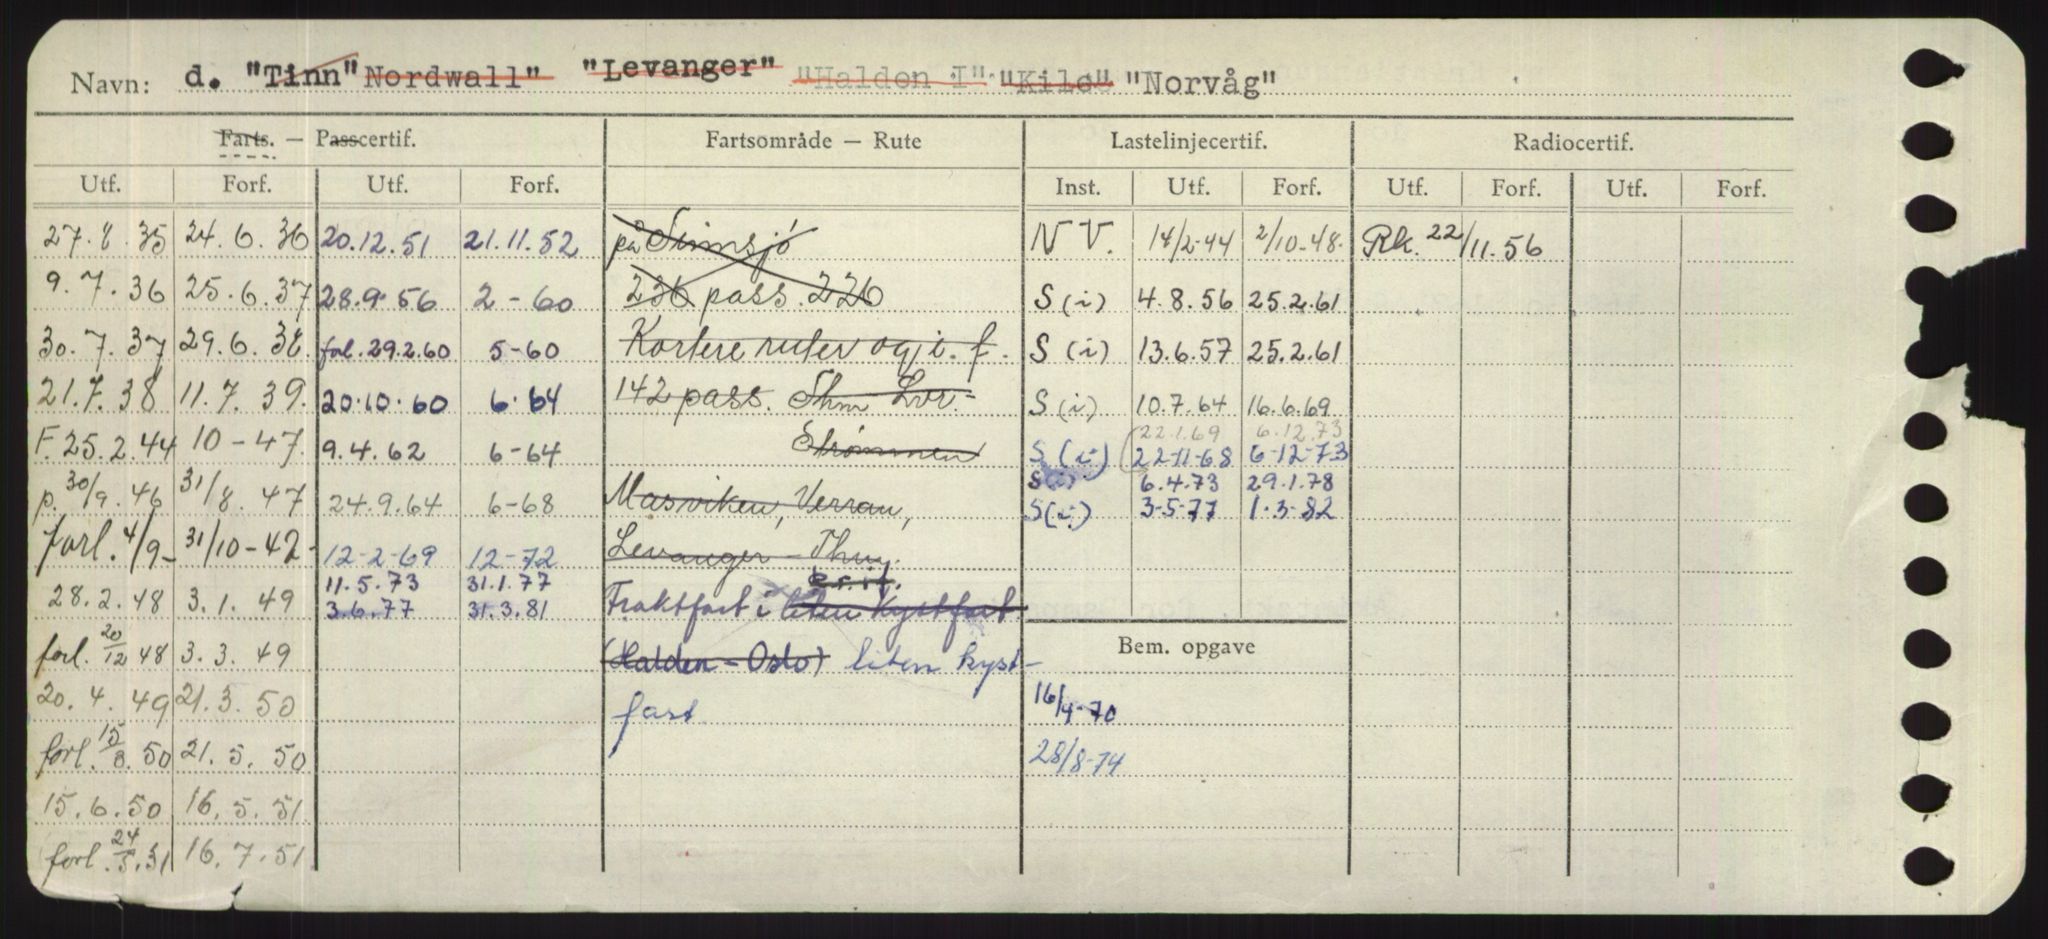 Navn: d. "Tinn" Nordwall" "Levanger" "Halden I" "Kilo" "Norvåg"
Farts. — Passcertif. Fartsområde — Rute Lastelinjecertif. Radiocertif.
Utf. Forf. Utf. Forf. Inst. Utf. Forf. Utf. Forf. Utf. Forf.
27.8.35 24.6.36 20.12.51 21.11.52 på N V. 14/2-44 2/10-48. Rk. 22/11.56
9.7.36 25.6.37 28.9.56 2-60 236 pass. 226 S (i) 4.8.56 25.2.61
30.7.37 29.6.38 fol. 29.2.60 5-60 Kortere ruter og i. f. S (i) 13.6.57 25.2.61
21.7.38 11.7.39. 20.10.60 6.64 142 pass. S (i) 10.7.64 16.6.69
22.1.69 6.12.73
F. 25.2.44 10-47. 9.4.62 6-64 Strømmen S (i) 22-11-68 6-12-73
S(i) 6.4.73 29.1.78
p. 30/9.46 31/8.47 24.9.64 6-68 Masviken, Verran, S(i) 3-5-77 1.3-82
forl. 4/9- 31/10-42- 12-2-69 12-72 Levanger - Thm.
11.5.73 31.1.77
28.2.48 3.1.49 3.6.77 31.3.81 Fraktfart i liten Kystfart
forl. 20/12 48 3.3.49 (Halden - Oslo) liten kyst- Bem. opgave
20.4.49 21.3.50 fart 16/4-70
forl. 15/3.50 21.5.50 28/8-74
15.6.50 16.5.51
forl. 24/5.51 16.7.51